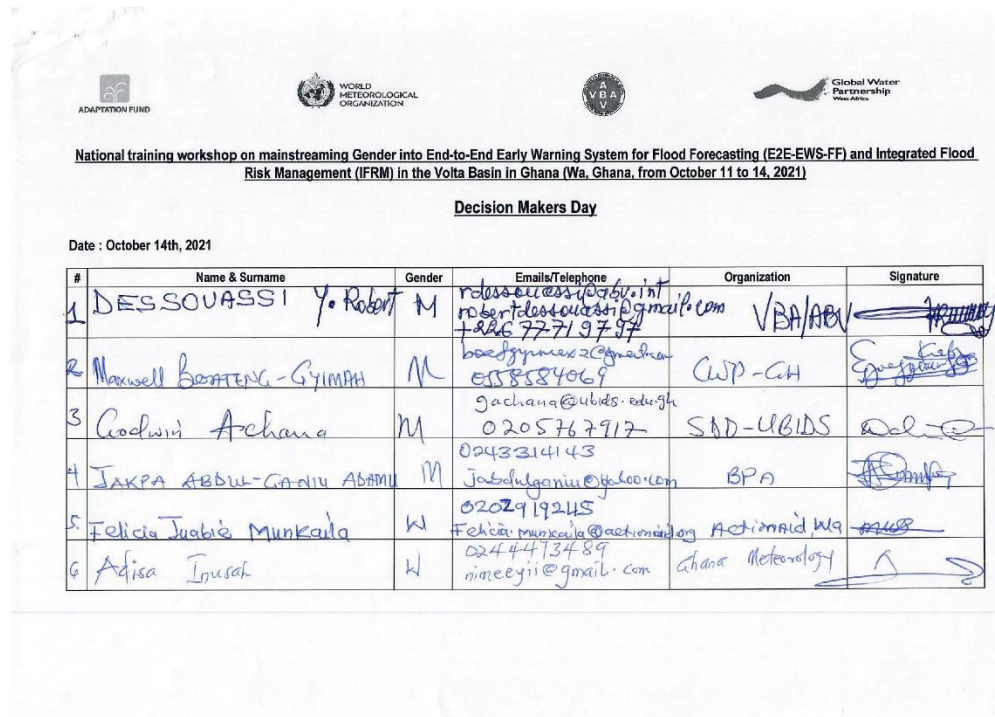 ADAPTATION FUND
WORLD
METEOROLOGICAL
ORGANIZATION
A
V B A
V
Global Water
Partnership
West Africa
National training workshop on mainstreaming Gender into End-to-End Early Warning System for Flood Forecasting (E2E-EWS-FF) and Integrated Flood
Risk Management (IFRM) in the Volta Basin in Ghana (Wa, Ghana, from October 11 to 14, 2021)
Decision Makers Day
Date : October 14th, 2021
# Name & Surname Gender Emails/Telephone Organization Signature
1 DESSOUASSI Y. Robert M rdessouassi@abv.int VBA/ABV
robertdessouassi@gmail.com
+226 77719797
2 Maxwell BOATENG-GYIMAH M
0558584069
3 Godwin Achana M gachana@ubids.edu.gh SDD-UBIDS
0205767917
4 JAKPA ABDUL-GANIU ADAMU M 0243314143 BPA
jabdulganiu@yahoo.com
5. Felicia Juabie Munkaila W 0202919245 ActionAid, Wa
Felicia.munkaila@actionaid.org
6 Adisa Inusah W 0244473489 Ghana Meteorology
nimeeyii@gmail.com